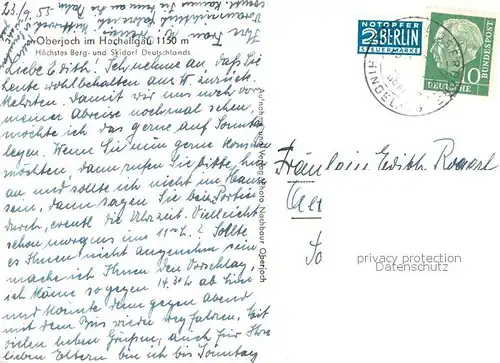 23./6. 55
Oberjoch im Hochallgäu 1150 m
Höchstes Berg- und Skidorf Deutschlands
Liebe Edith! Ich nehme an, daß Sie
heute wohlbehalten aus W. zurück-
kehrten. Damit wir uns noch vor
meiner Abreise nochmal sehen,
möchte ich das gerne auf Sonntag
legen. Wenn Sie mich gerne
möchten, dann rufen Sie bitte hier
an und sollte ich nicht im Hause
sein, dann sagen Sie beim Portier
durch, eventl. die Uhrzeit. Vielleicht
schon morgens um 11 Sollte
es Ihnen nicht angenehm sein
mache ich Ihnen den Vorschlag,
ich käme so gegen 14.30 h
und könnte dann gegen abend
mit dem Bus wieder wegfahren. Mit
vielen lieben Grüßen, auch für Ihre
lieben Eltern bin ich bis Sonntag
Ihr Franz
Aufnahme und Verlag Photo Nachbaur Oberjoch
NOTOPFER
2 BERLIN
STEUERMARKE
HINDEL
10
DEUTSCHE
BUNDESPOST
Fräulein Edith
privacy protection
Datenschutz